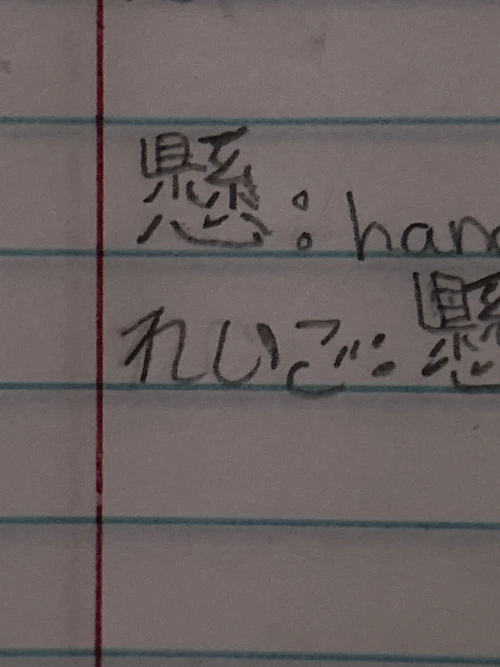 懸：hang
れいご：懸